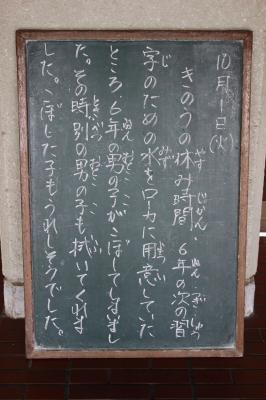 10月1日(火)
きのうの休み時間、6年の次の習
字のための水をローカに用意していた
ところ、6年の男の子がこぼしてしまいまし
た。その時別の男の子も拭いてくれま
した。こぼした子もうれしそうでした。